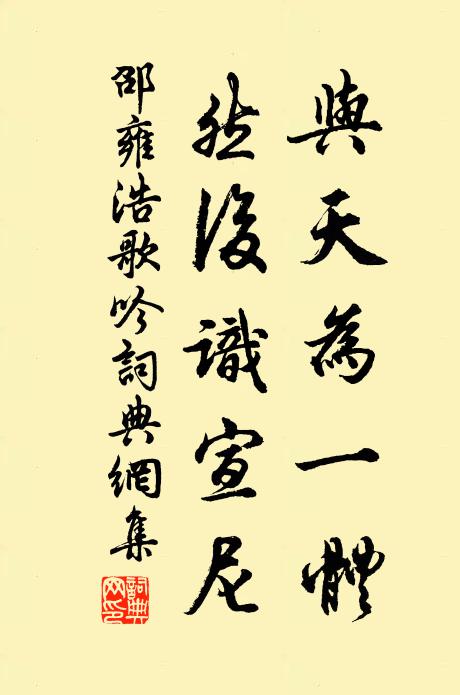 與天為一體
然後識宣尼
邵雍浩歌吟詞典網集
詞典網印